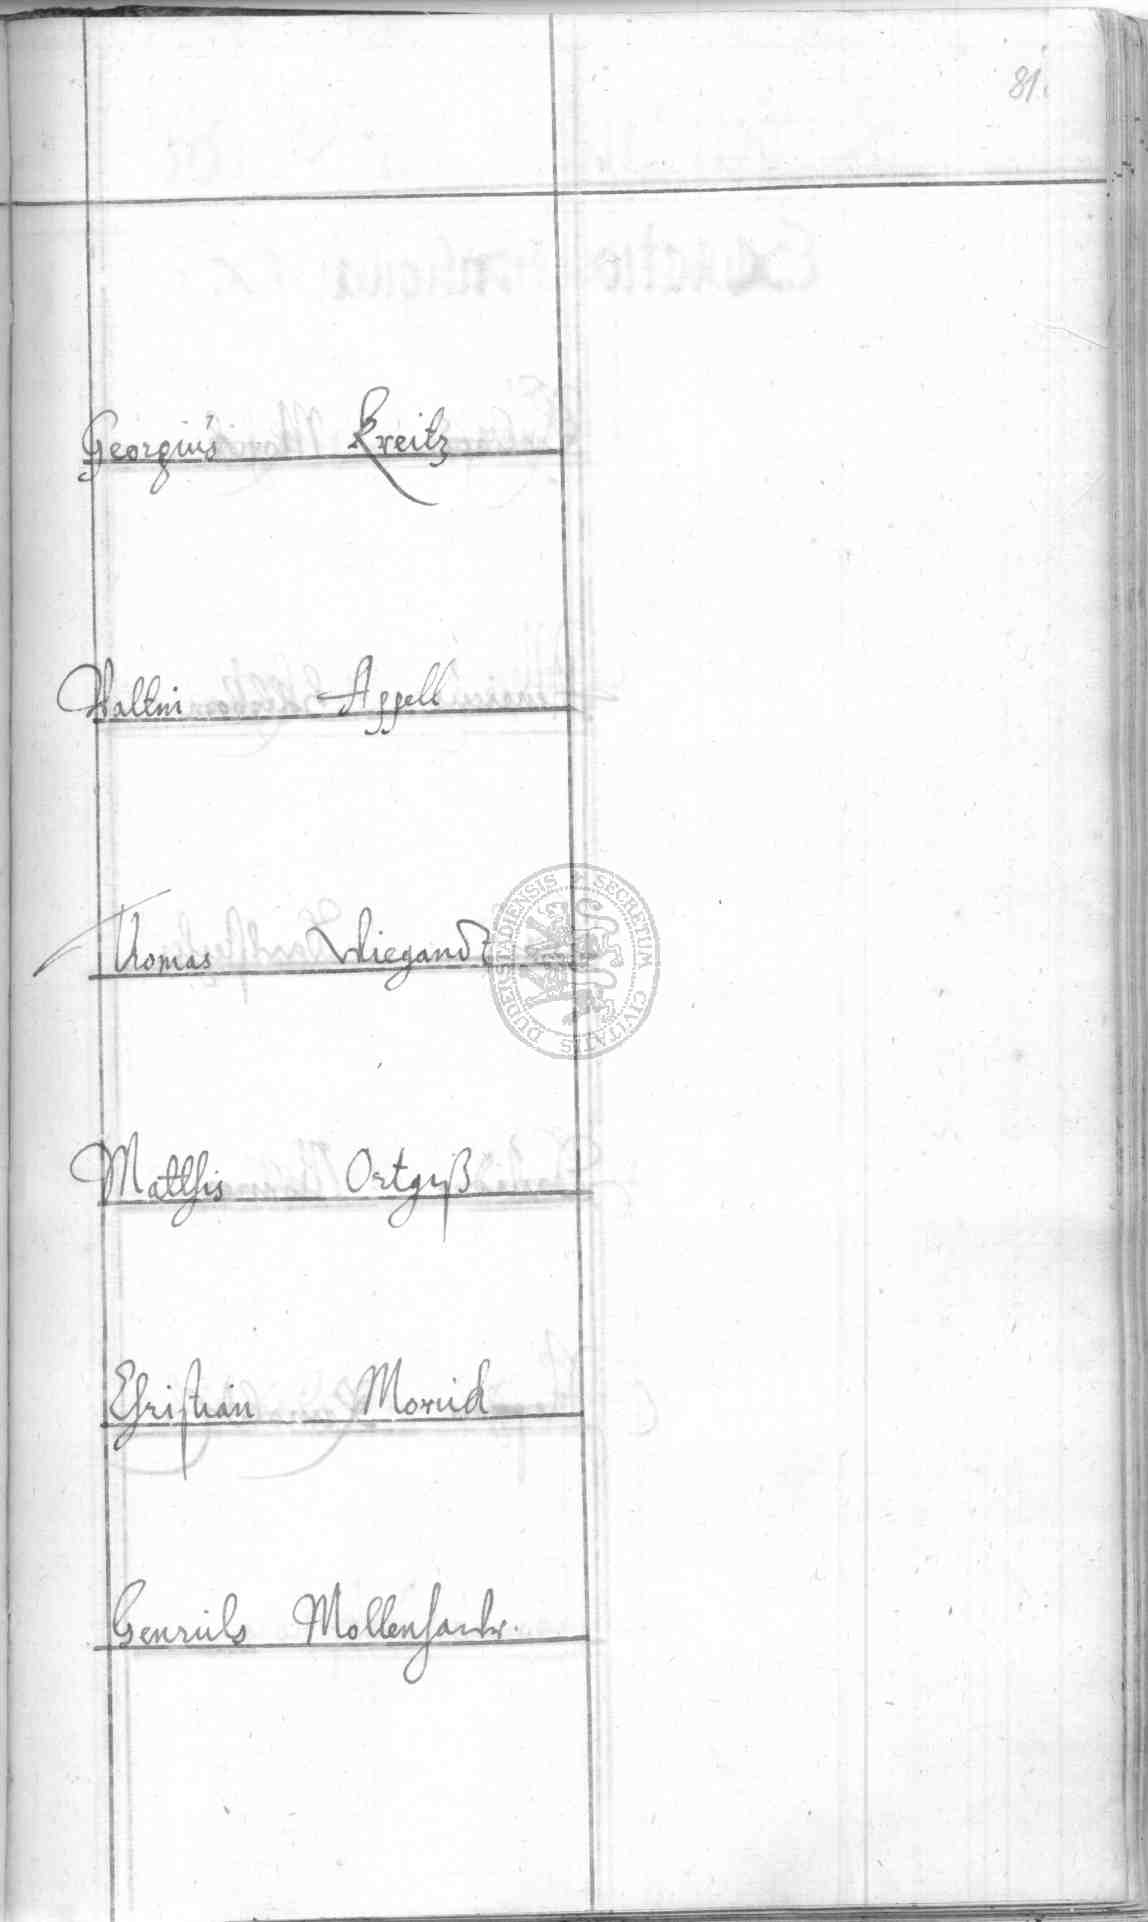 81.
Georgius Kreitz
Valtin Appell
Thomas Wiegandt
Matthis Ortgyß
Christian Morick
Henrich Mollenhawr.
SECRETUM CIVITATIS DUDERSTADIENSIS